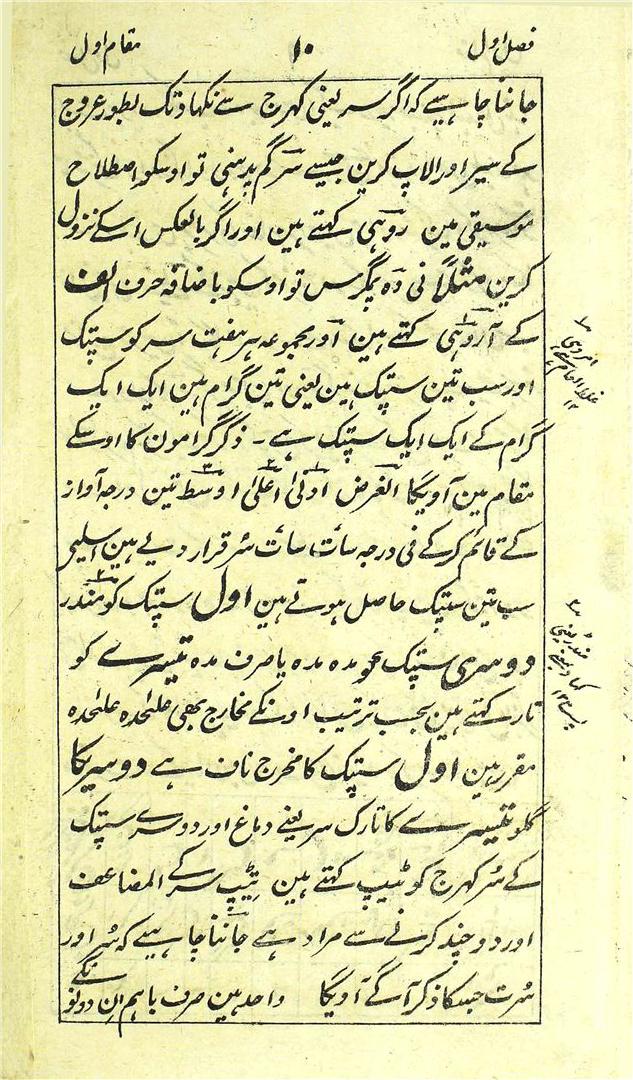 فصل اول ۱۰ مقام اول
جاننا چاہیے کہ اگر سر یعنی کہرج سے نکہاد تک بطور عروج
کے سیر اور الاپ کرین جیسے سرگم پدہنی تو اوسکو اصطلاح
موسیقی مین روہی کہتے ہین اور اگر بالعکس اسکے نزول
کرین مثلاً نی دہ پمگرس تو اوسکو باضافہ حرف الف
کے آروہی کہتے ہین اور مجموعہ ہر ہفت سر کو سپتک
اور سب تین سپتک ہین یعنی تین گرام ہین ایک ایک
گرام کے ایک ایک سپتک ہے ۔ ذکر گرامون کا اوسکے
مقام مین آویگا الغرض ادنیٰ اعلیٰ اوسط تین درجہ آواز
کے قائم کرکے فی درجہ سات سات سُر قرار دیے ہین اسلیے
سب تین سپتک حاصل ہوتے ہین اول سپتک کو مندر
دوسری سپتک عمودہ مدہ یا صرف مدہ تیسرے کو
تار کہتے ہین بحسب ترتیب اونکے مخارج بھی علٰحدہ علٰحدہ
مقرر ہین اول سپتک کا مخرج ناف ہے دوسریکا
گلو تیسرے کا تارک سر یعنے دماغ اور دوسرے سپتک
کے سُر کہرج کو ٹیپ کہتے ہین ٹیپ سر کے المضاعف
اور دوچند کرنے سے مراد ہے جاننا چاہیے کہ سُر اور
سُرت جسکا ذکر آگے آویگا واحد ہین صرف باہم اِن دونونکے